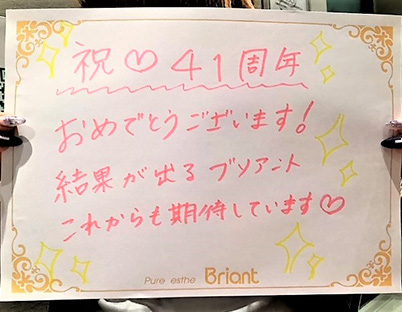 祝♡41周年
おめでとうございます!
結果が出るブソアント
これからも期待しています♡
Pure esthe Briant